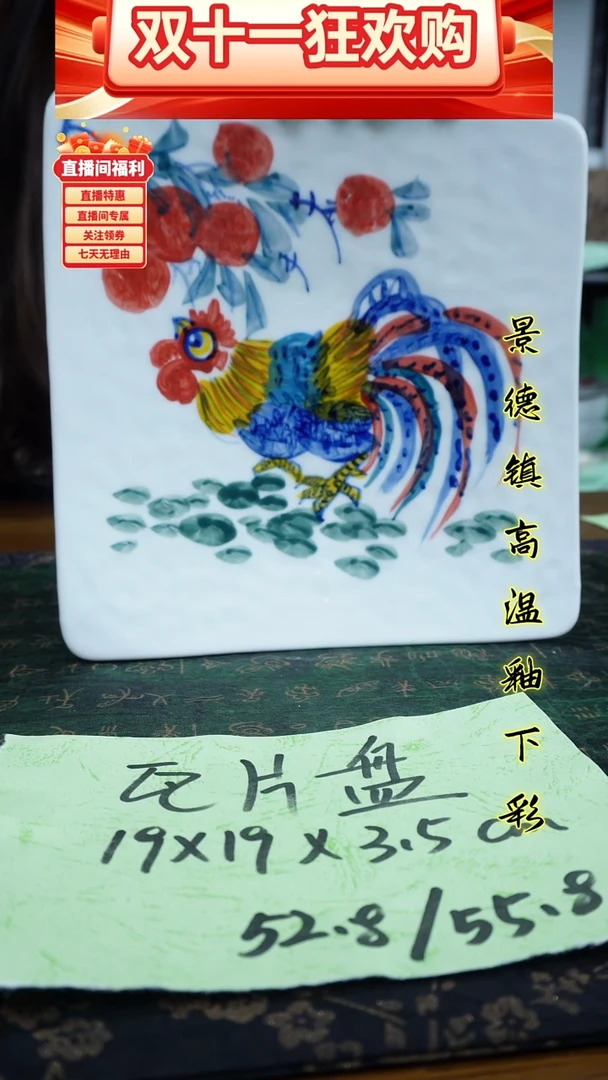 双十一狂欢购
直播间福利
直播特惠
直播间专属
关注领券
七天无理由
景德镇高温釉下彩
瓦片盘
19×19×3.5cm
52.8/55.8